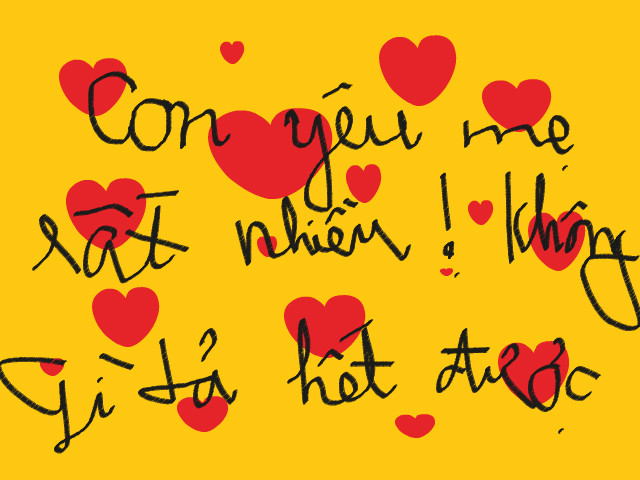 Con yêu mẹ
rất nhiều! không
gì tả hết được